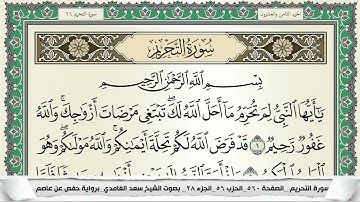 الجزء الثامن والعشرون
سورة التحريم ٦٦
سُورَةُ التَّحْرِيمِ
بِسْمِ اللَّهِ الرَّحْمَٰنِ الرَّحِيمِ
يَا أَيُّهَا النَّبِيُّ لِمَ تُحَرِّمُ مَا أَحَلَّ اللَّهُ لَكَ تَبْتَغِي مَرْضَاتَ أَزْوَاجِكَ وَاللَّهُ
غَفُورٌ رَّحِيمٌ ١ قَدْ فَرَضَ اللَّهُ لَكُمْ تَحِلَّةَ أَيْمَانِكُمْ وَاللَّهُ مَوْلَاكُمْ وَهُوَ
سورة التحريم _الصفحة -٥٦٠ _الحزب ٥٦ _الجزء ٢٨ _ بصوت الشيخ سعد الغامدي _برواية حفص عن عاصم